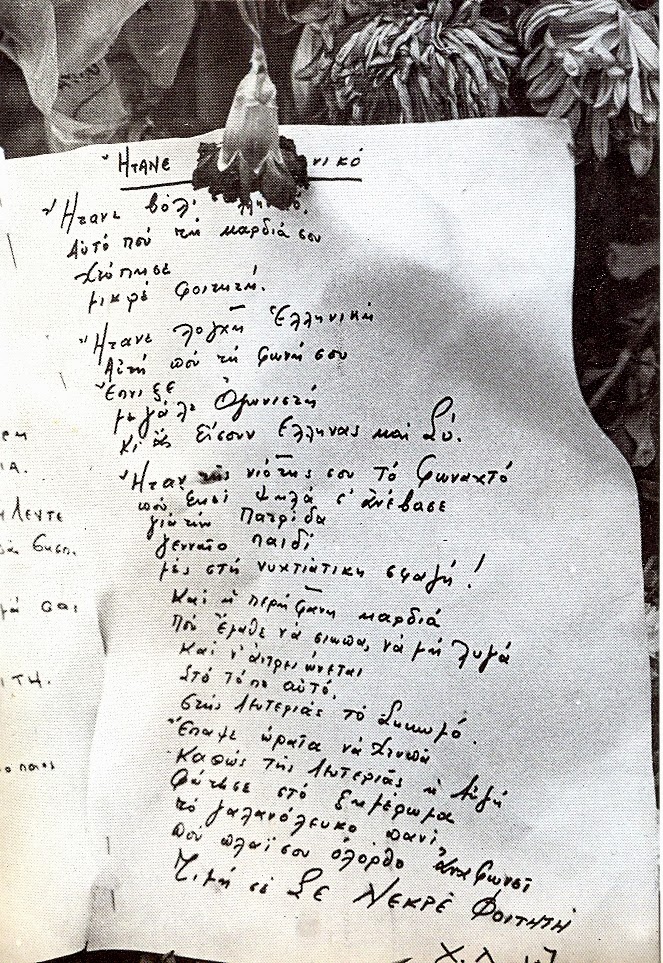 ρεη
ΙΑ.
ΛΕΝΤΕ
ΙΤΗ.
Ἤτανε νικό
Ἤτανε βόλι
Αὐτό πού τή καρδιά σου
Χτύπησε
μικρέ φοιτητή.
Ἤτανε λόγχη Ἑλληνική
Αὐτή πού τή φωνή σου
Ἔπνιξε
μεγάλε Ἀγωνιστή
Κι ἄς εἴσουν Ἕλληνας καί Σύ.
Ἤταν τῆς νιότης σου τό φωναχτό
πού ἐκεῖ ψηλά σ' ἀνέβασε
γιά τήν Πατρίδα
γενναῖο παιδί
μές στή νυχτιάτικη σφαγή!
Καί ἡ περήφανη καρδιά
Πού ἔμαθε νά σιωπᾶ, νά μή λυγᾶ
Καί ν' ἀντρειώνεται
Στό τόπο αὐτό,
Στῆς Λευτεριᾶς τό Σηκωμό.
Ἔπαψε ὡραῖα νά χτυπᾶ
Καθώς τῆς Λευτεριᾶς ἡ Αὐγή
Φώτισε στό ξημέρωμα
τό γαλανόλευκο πανί,
πού πλάϊ σου ὁλόρθο ἀναφωνεῖ
Τιμή σέ ΣΕ ΝΕΚΡΕ ΦΟΙΤΗΤΗ
Χ. Λ.